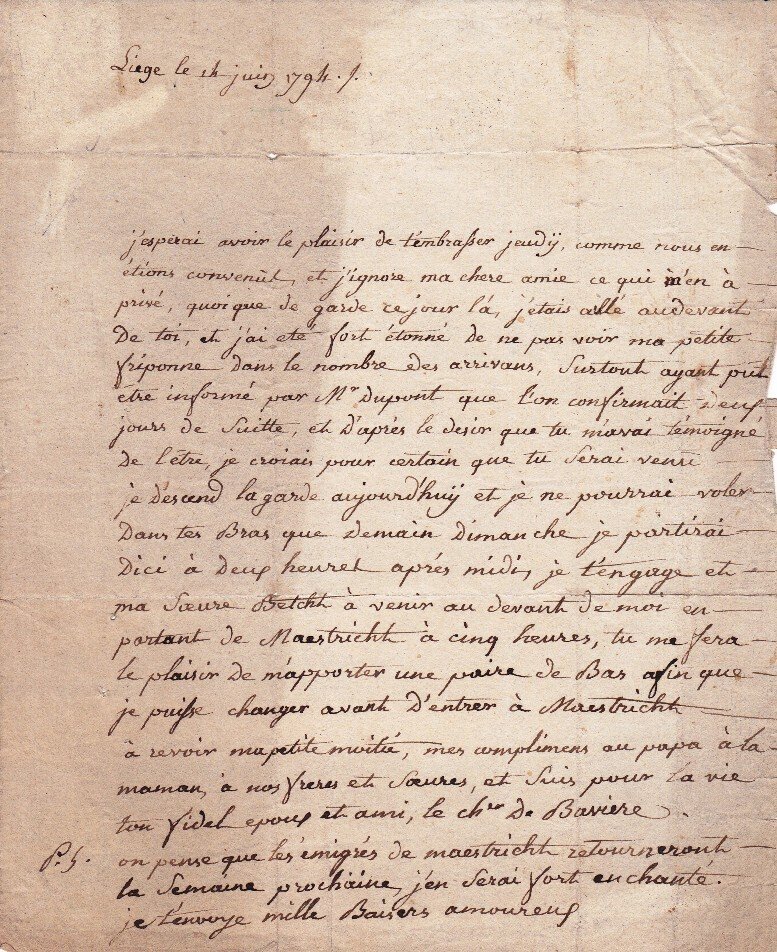 Liege le 14 juin 1794. s.
j'esperai avoir le plaisir de t'embrasser jeudÿ, comme nous en
étions convenût, et j'ignore ma chere amie ce qui m'en à
privé, quoique de garde ce jour là, j'etais allé audevant
de toi, et j'ai eté fort étonné de ne pas voir ma petite
friponne dans le nombre des arrivans, Surtout ayant put
être informé par Mr Dupont que l'on confirmait deux
jours de Suitte, et d'après le desir que tu m'avai témoigné
de l'etre, je croiais pour certain que tu Serai venu
je descend la garde aujourd'huÿ et je ne pourrai voler
dans tes Bras que demain dimanche je partirai
dici à deux heures aprés midi, je t'engage et
ma Sœure Betcht à venir au devant de moi en
partant de Maestricht à cinq heures, tu me fera
le plaisir de m'apporter une paire de Bas afin que
je puisse changer avant d'entrer à Maestricht
à revoir ma petite moitié, mes complimens au papa à la
maman, à nos freres et Sœures, et Suis pour la vie
ton fidel epoux et ami, le cher de Baviere.
P. S. on pense que les émigrés de maestricht retourneront
la Semaine prochaine, j'en Serai fort enchanté.
je t'envoye mille Baisers amoureux